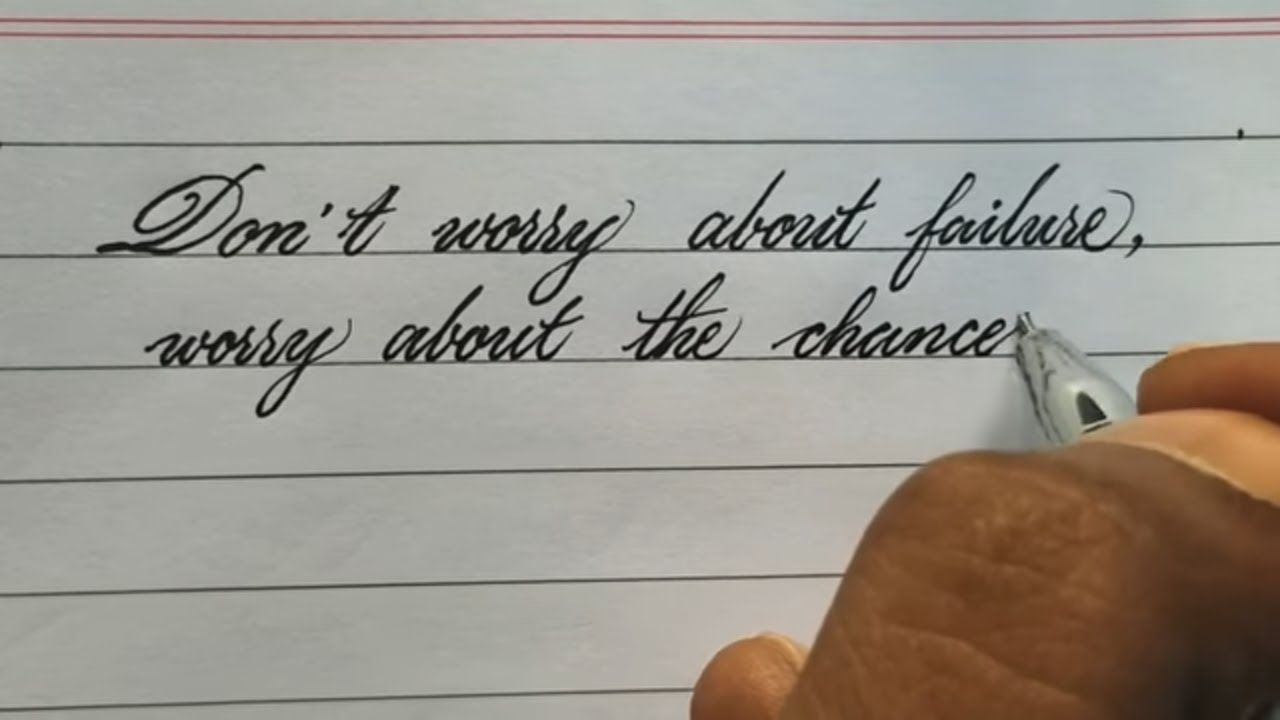 Don't worry about failure,
worry about the chance